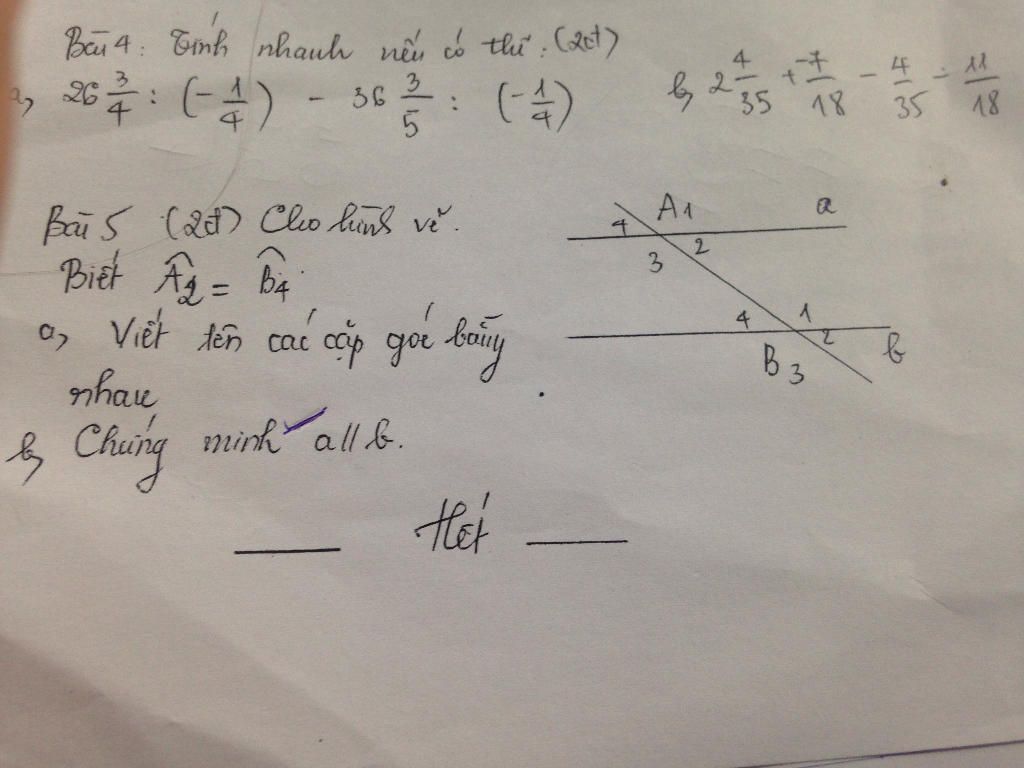 Bài 4: Tính nhanh nếu có thể: (2đ)
a, 26 3/4 : (-1/4) - 36 3/5 : (-1/4)
b, 2 4/35 + -7/18 - 4/35 - 11/18
Bài 5 (2đ) Cho hình vẽ.
Biết Â2 = B̂4
a, Viết tên các cặp góc bằng
nhau
b, Chứng minh a // b.
Hết
A 1 a
4
3 2
4 1
2 b
B 3